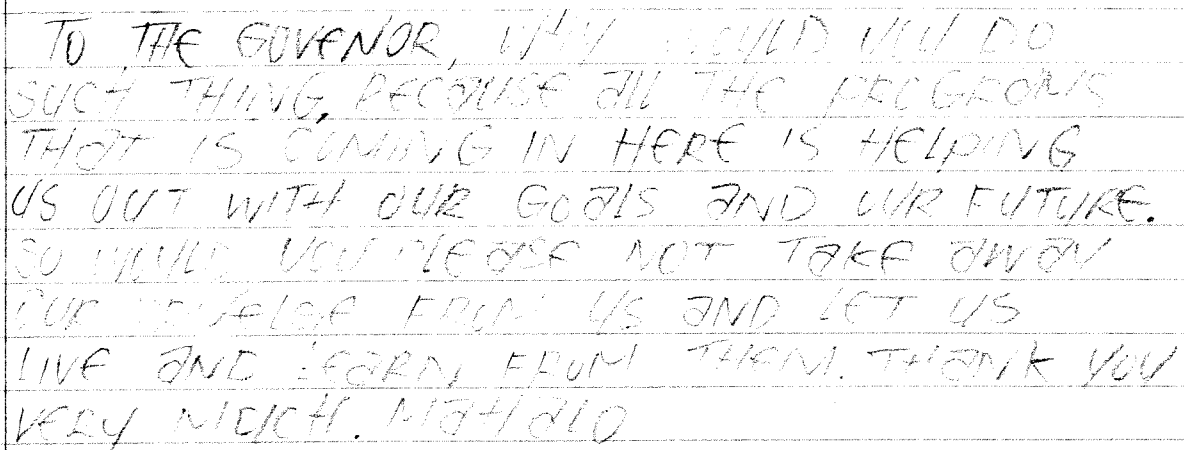 TO THE GOVENOR, WHY WOULD YOU DO
SUCH THING, BECAUSE all THE PROGRAMS
THAT IS COMING IN HERE IS HELPING
US OUT WITH OUR GOalS AND OUR FUTURE.
SO WOULD YOU PLEASE NOT TAKE AWAY
OUR FROM US AND LET US
LIVE AND LEARN FROM THEM. THANK YOU
VERY MUCH. MAHALO